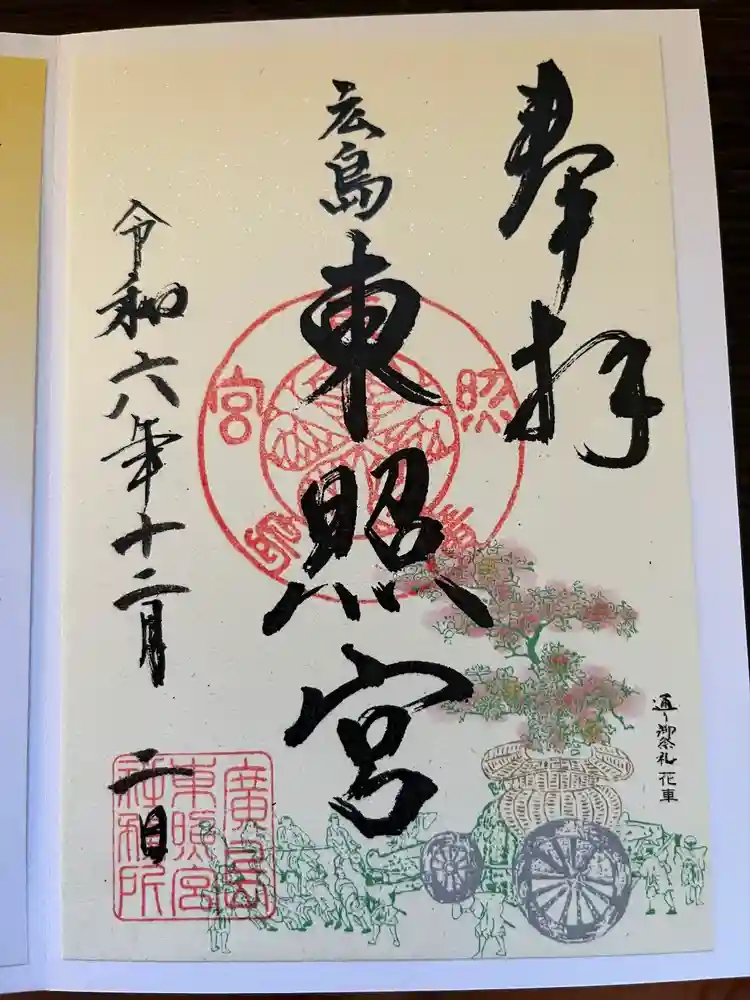 奉拝
広島
東照宮
令和六年十二月二日
通り御祭礼 花車
照
宮
廣島
東照宮
社務所